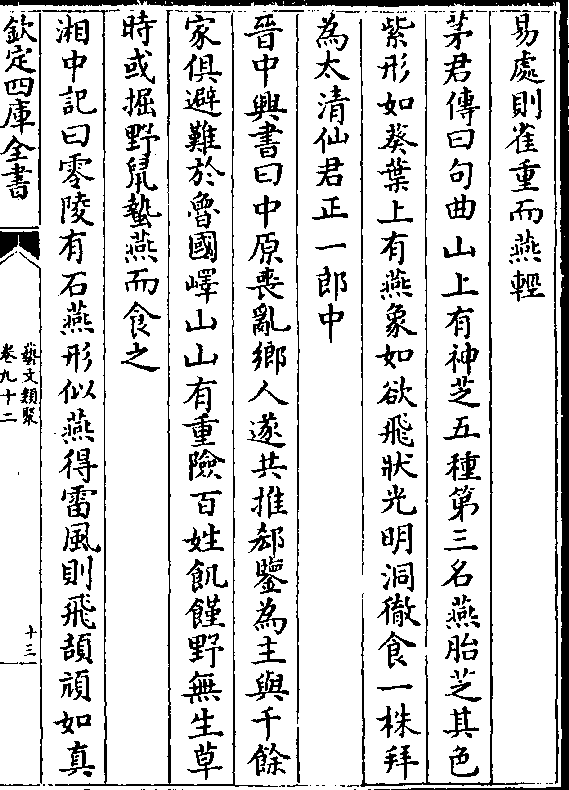 易處則雀重而燕輕
茅君傳曰句曲山上有神芝五種第三名燕胎芝其色
紫形如葵葉上有燕象如欲飛狀光明洞徹食一株拜
為太清仙君正一郎中
晉中興書曰中原喪亂鄉人遂共推郄鑒為主與千餘
家俱避難於魯國嶧山山有重險百姓飢饉野無生草
時或掘野鼠蟄燕而食之
湘中記曰零陵有石燕形似燕得雷風則飛頡頏如真
欽定四庫全書
藝文類聚
卷九十二
十三